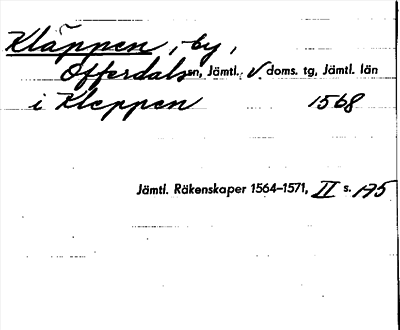 Kläppen, by,
Offerdalsn, Jämtl. V. doms. tg, Jämtl. län
i Kleppen 1568
Jämtl. Räkenskaper 1564–1571, II s. 175